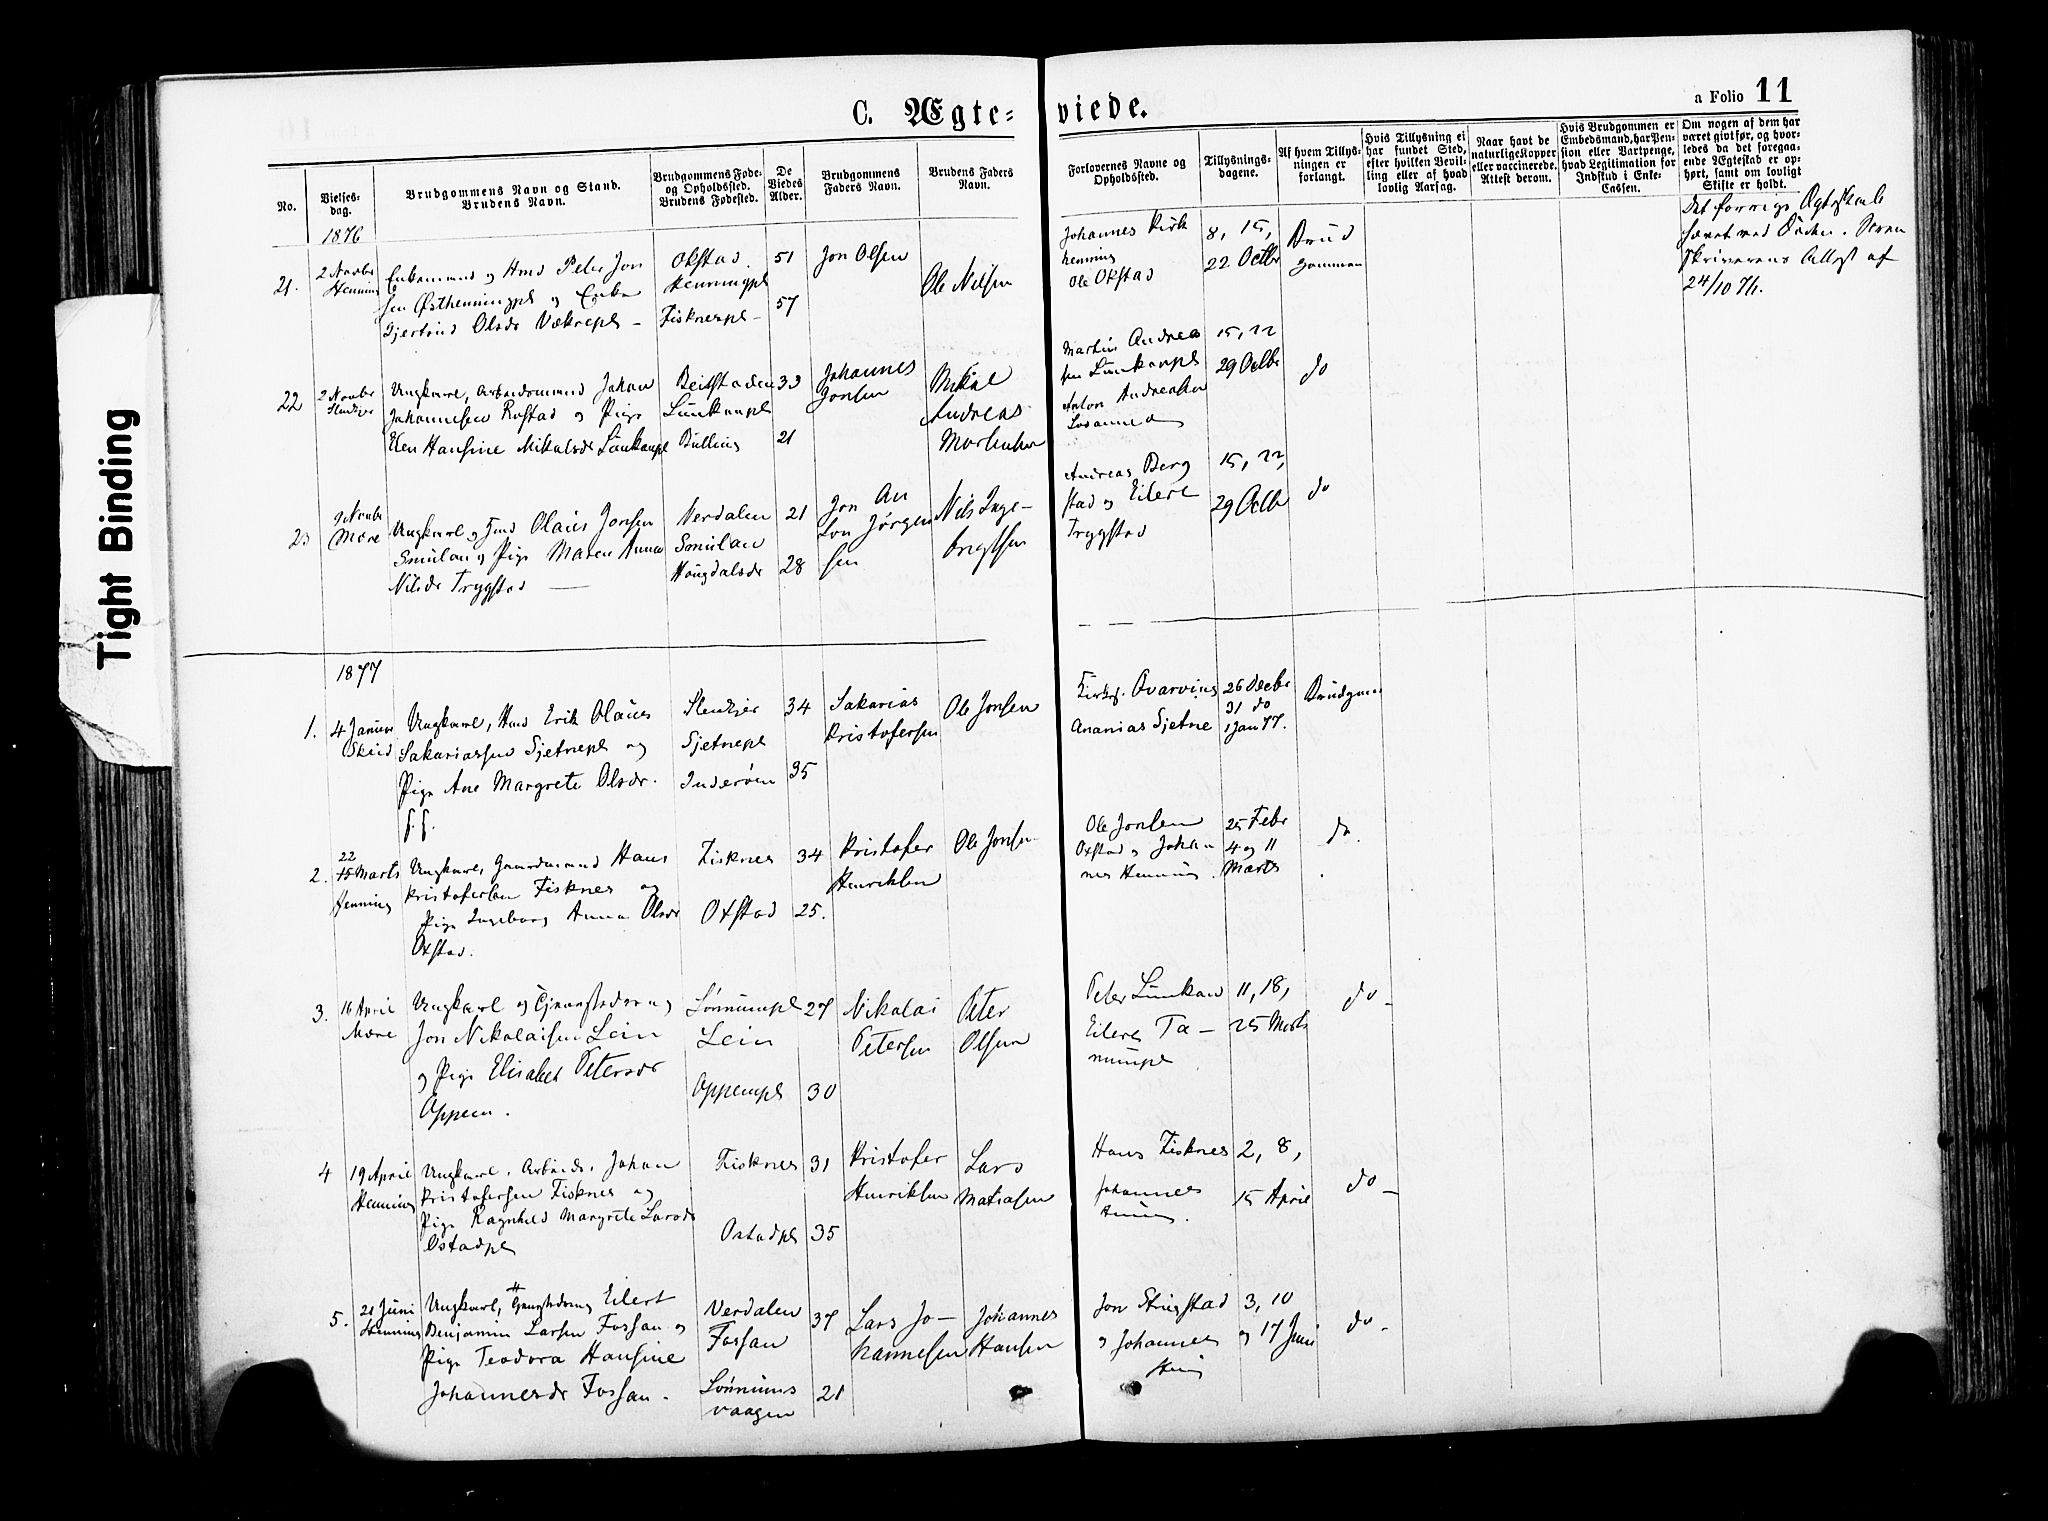 Tight Binding
C. Ægte-
viede.
a Folio 11
No.
Vielses-
dag.
Brudgommens Navn og Stand.
Brudens Navn.
Brudgommens Føde-
og Opholdssted.
Brudens Fødested.
De
Viedes
Alder.
Brudgommens
Faders Navn.
Brudens Faders
Navn.
Forlovernes Navne og
Opholdssted.
Tillysnings-
dagene.
Af hvem Tillys-
ningen er
forlangt.
Hvis Tillysning ei
har fundet Sted,
efter hvilken Bevil-
ling eller af hvad
lovlig Aarsag.
Naar havt de
naturlige Kopper
eller vaccinerede.
Attest derom.
Hvis Brudgommen er
Embedsmand, har Pen-
sion eller Vartpenge,
hvad Legitimation for
Indskud i Enke-
Cassen.
Om nogen af dem har
været gift før, og hvor-
ledes da det foregaa-
ende Ægteskab er op-
hørt, samt om lovligt
Skifte er holdt.
1876
21.
2 Novbr
Henning
Enkemand og Hmd Peter Jon
sen Østhenningpl og Enke
Gjertrud Olsdr Vækrepl -
Okstad.
Henningpl
Fisknespl -
51
57
Jon Olsen
Ole Nilsen
Johannes Kirk
henning
Ole Okstad
8, 15,
22 Octbr
Brud
gommen
Det forrige Ægteskab
hævet ved Døden. Soren
skriverens Attest af
24/10 76.
22
2 Novbr
Stenkjer
Ungkarl, Arbeidsmand Johan
Johannesen Rustad og Pige
Elen Hansine Mikalsdr Lunkanpl
Beitstaden
Lunkanpl
Balling
33
21
Johannes
Jonsen
Mikal
Andreas
Mortensen
Martin Andrea
sen Lunkanpl
Anton Andreasen
15, 22
29 Octbr
do
23
9 Novbr
Mære
Ungkarl og Hmd Olaus Jonsen
Smulan og Pige Maren Anna
Nilsdr Trygstad
Verdalen
Smulan
Hougdalsdr
21
28
Jon An
ton Jørgen
sen
Nils Inge-
brigtsen
Andreas Berg
stad og Eilert
Trygstad
15, 22,
29 Octbr
do
1877
1.
4 Januar
Skeid
Ungkarl, Hmd Erik Olaus
Sakariassen Sjetnepl og
Pige Ane Margrete Olsdr.
f. f.
Stenkjer
Sjetnepl
Inderøen
34
35
Sakarias
Kristofersen
Ole Jonsen
Kirks. Qvarving
Ananias Sjetne
26 Decbr
31 do
1 Jan 77.
Brudgom
2.
22
15 Marts
Henning
Ungkarl, Gaardmand Hans
Kristofersen Fisknes og
Pige Ingeborg Anna Olsdr
Oxstad.
Fisknes
Oxstad
34
25.
Kristofer
Henriksen
Ole Jonsen
Ole Jonsen
Oxstad og Johan
nes Henning.
25 Febr
4 og 11
Marts
do.
3.
16 April
Mære
Ungkarl og Gaardsdreng
Jon Nikolaisen Lein
og Pige Elisabet Petersdr
Oppem.
Lønnumpl
Lein
Oppempl
27
30
Nikolai
Petersen
Peter
Olsen
Peter Lunkan
Eilert Ta-
numpl
11, 18,
25 Marts
do -
4
19 April
Henning
Ungkarl, Arbeids. Johan
Kristofersen Fisknes og
Pige Ragnhild Margrete Larsdr
Ostadpl
Fisknes
Ostadpl
31
35
Kristofer
Henriksen
Lars
Matiasen
Hans Fisknes
Johannes
2, 8,
15 April
do -
5.
21 Juni
Henning
Ungkarl, Gaardsdreng Eilert
Benjamin Larsen Fossan og
Pige Teodora Hansine
Johannesdr Fossan.
Verdalen
Fossan
Lønnums
vaagen
37
21
Lars Jo-
hannesen
Johannes
Hansen
Jon Strugstad
og Johannes
3, 10
og 17 Juni
do -